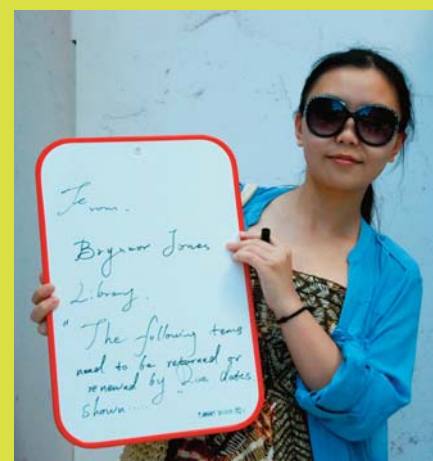 Brynmor Jones
Library.
"The following tems
need to be returned or
renewed by Due dates
shown...."